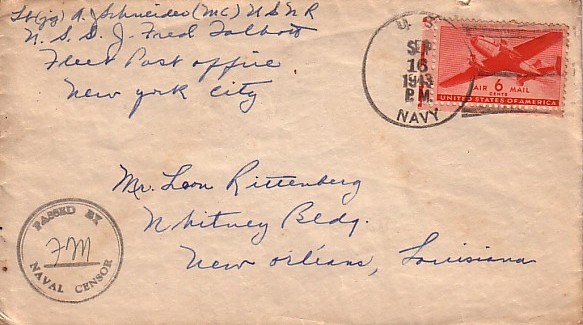 Lt(jg) A. Schneider (MC) U S N R
U. S. S. J. Fred Talbott
Fleet Post office
New york City
U. S.
SEP
16
1943
P.M.
NAVY
AIR 6 MAIL
CENTS
UNITED STATES OF AMERICA
Mr. Leon Rittenberg
Whitney Bldg.
New orleans, Louisiana
PASSED BY
NAVAL CENSOR